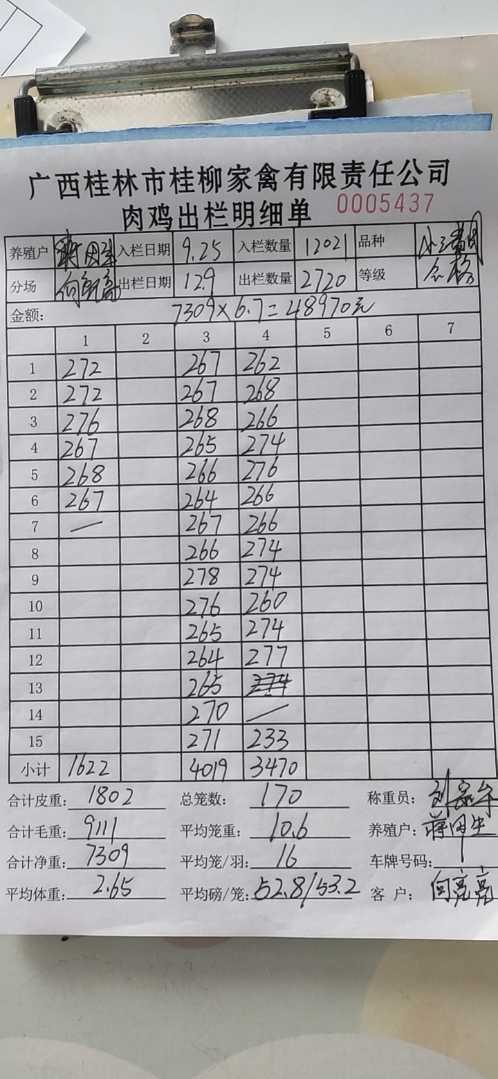 广西桂林市桂柳家禽有限责任公司
肉鸡出栏明细单 0005437
养殖户 入栏日期 9.25 入栏数量 12021 品种
分场 出栏日期 12.9 出栏数量 2720 等级 合格
金额: 7309×6.7=48970元
1 2 3 4 5 6 7
1 272 267 262
2 272 267 268
3 276 268 266
4 267 265 274
5 268 266 276
6 267 264 266
7 — 267 266
8 266 274
9 278 274
10 276 260
11 265 274
12 264 277
13 265
14 270 —
15 271 233
小计 1622 4019 3470
合计皮重: 1802 总笼数: 170 称重员:
合计毛重: 9111 平均笼重: 10.6 养殖户:
合计净重: 7309 平均笼/羽: 16 车牌号码:
平均体重: 2.65 平均磅/笼: 52.8/53.2 客户: 向亮亮